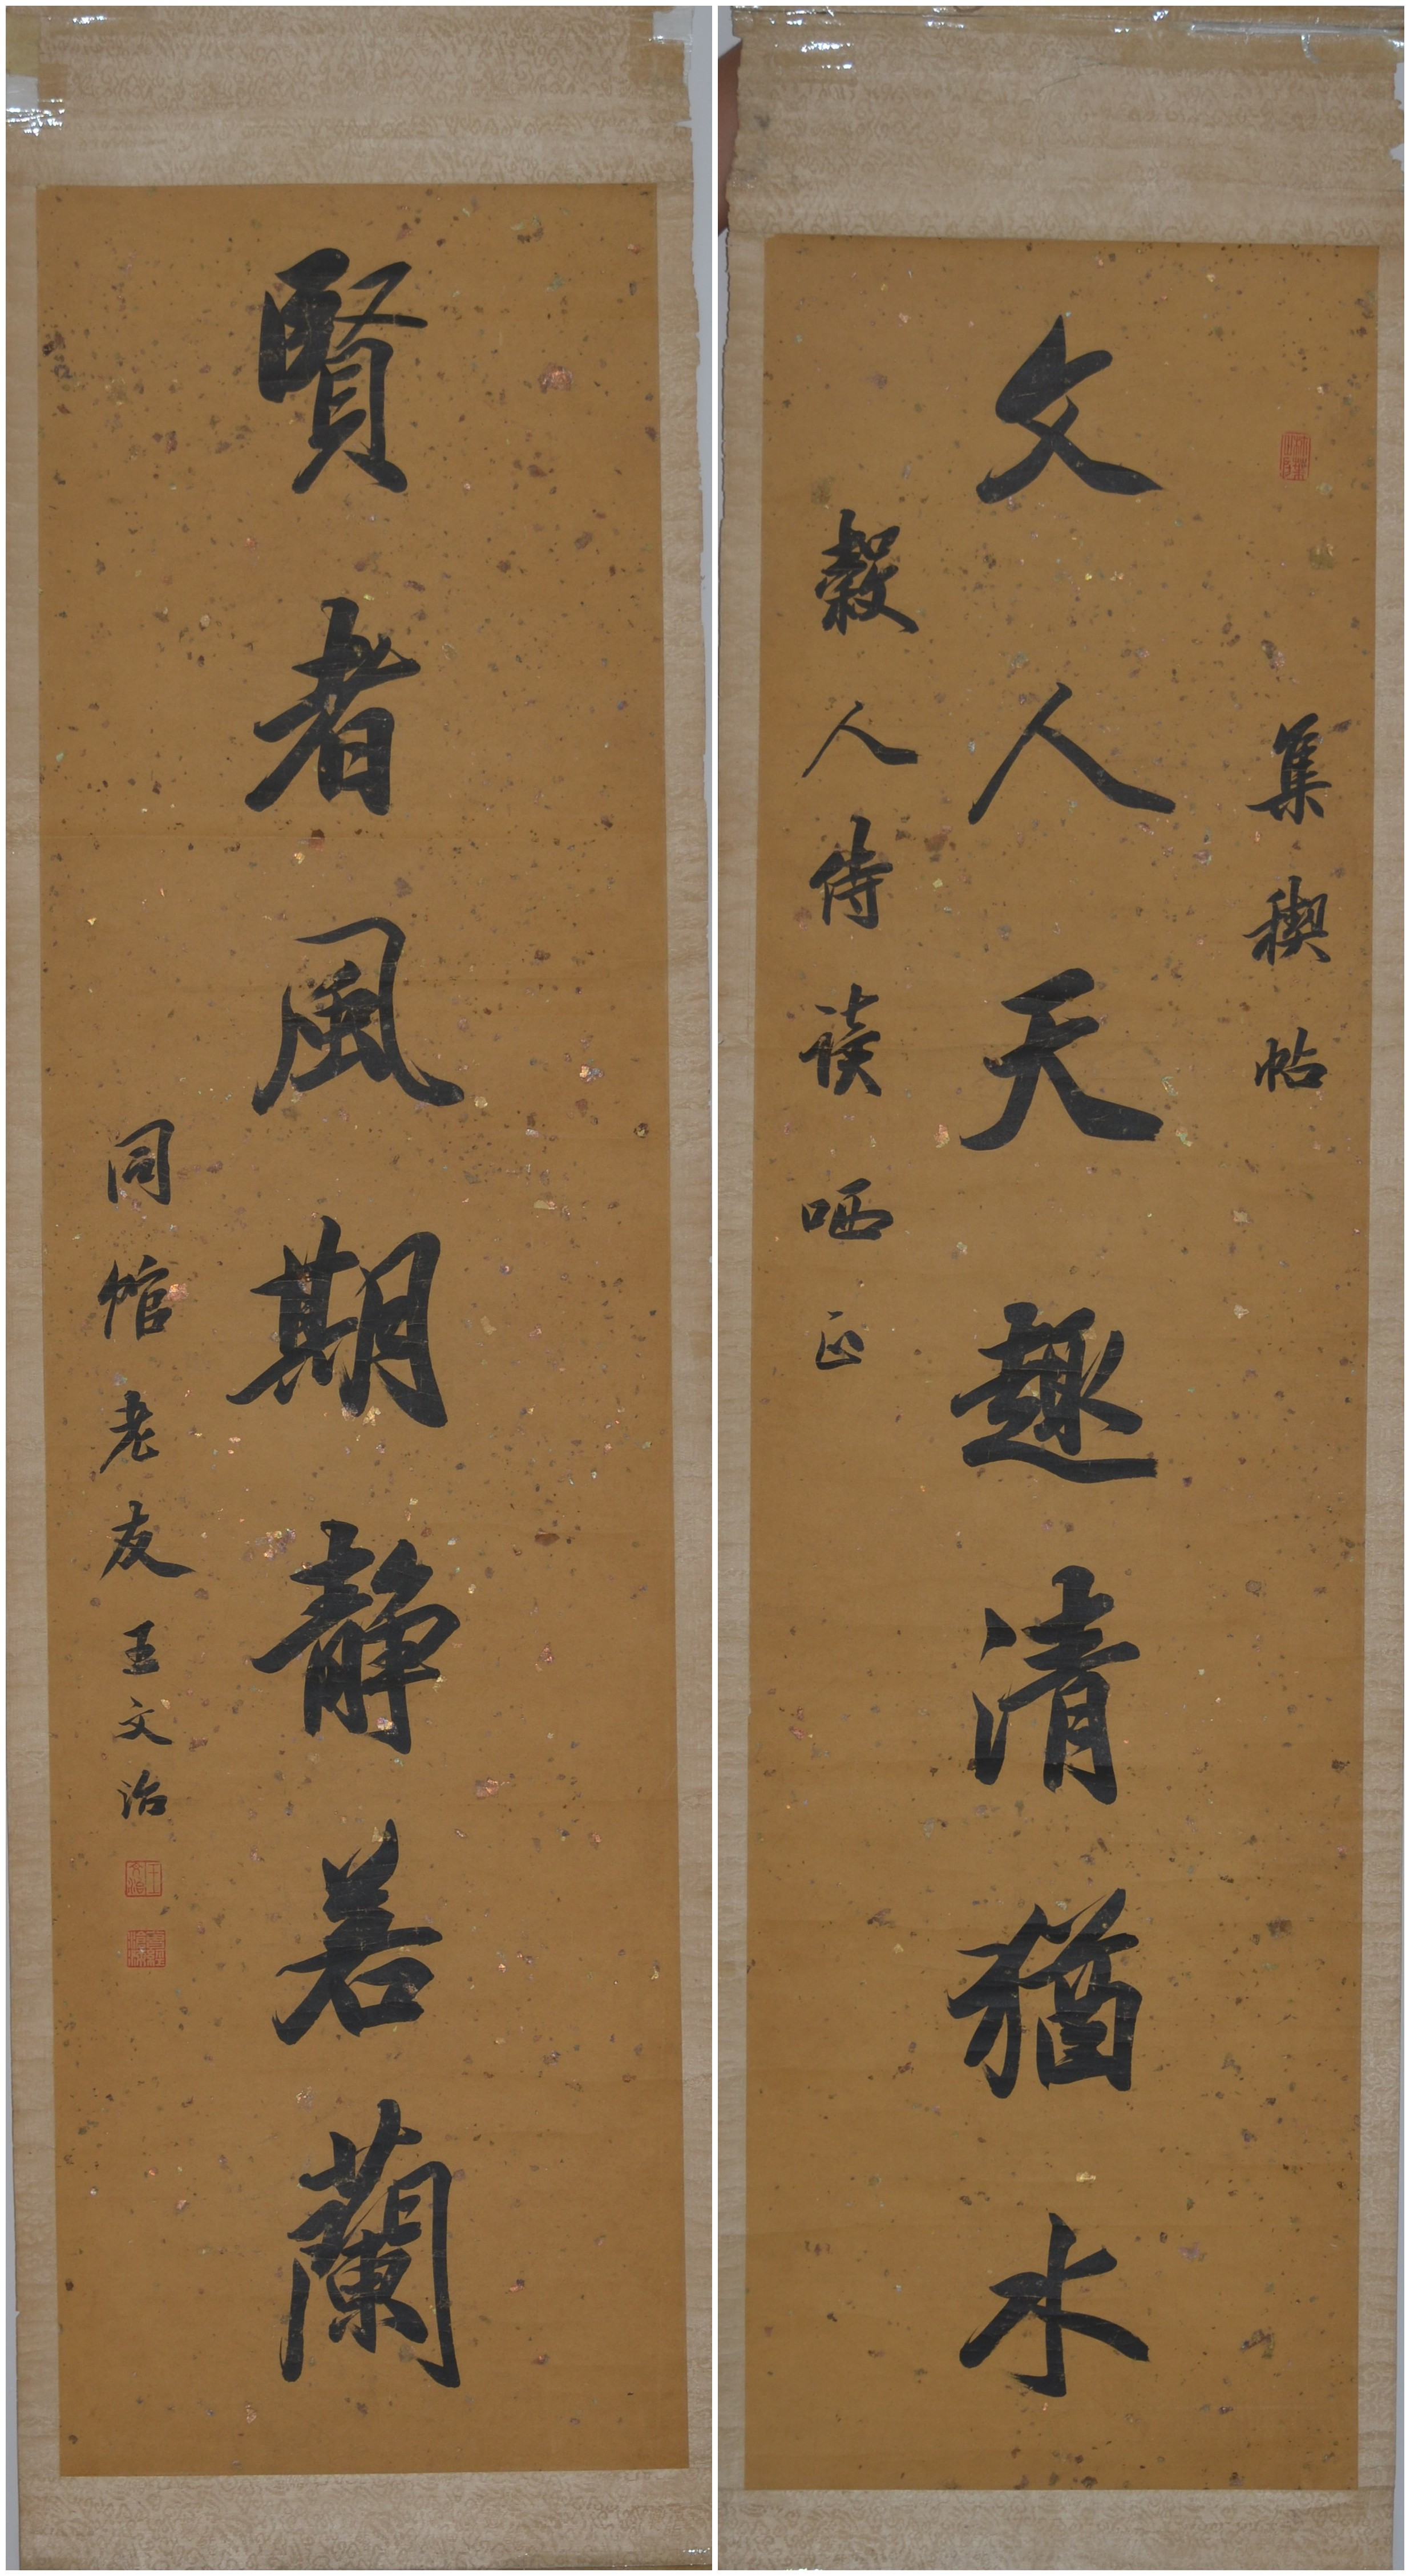 集禊帖
文人天趣清猶水
穀人侍讀哂正
賢者風期靜若蘭
同館老友王文治
王文治